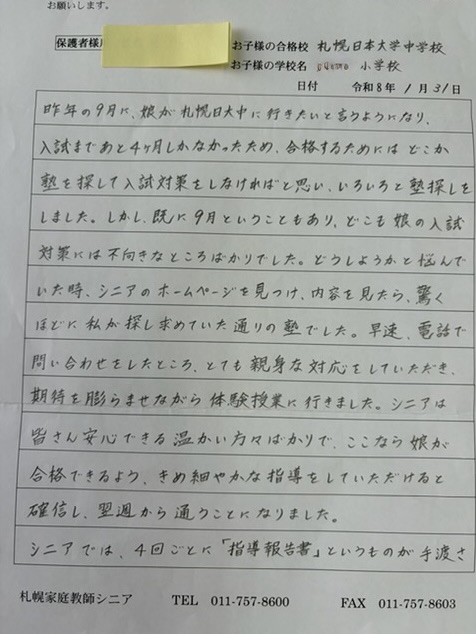 お願いします。
保護者様
お子様の合格校 札幌日本大学中学校
お子様の学校名 小学校
日付 令和8年 1月31日
昨年の9月に、娘が札幌日大中に行きたいと言うようになり、
入試まであと4ヶ月しかなかったため、合格するためにはどこか
塾を探して入試対策をしなければと思い、いろいろと塾探しを
しました。しかし、既に9月ということもあり、どこも娘の入試
対策には不向きなところばかりでした。どうしようかと悩んで
いた時、シニアのホームページを見つけ、内容を見たら、驚く
ほどに私が探し求めていた通りの塾でした。早速、電話で
問い合わせをしたところ、とても親身な対応をしていただき、
期待を膨らませながら体験授業に行きました。シニアは
皆さん安心できる温かい方々ばかりで、ここなら娘が
合格できるよう、きめ細やかな指導をしていただけると
確信し、翌週から通うことになりました。
シニアでは、4回ごとに「指導報告書」というものが手渡さ
札幌家庭教師シニア TEL 011-757-8600 FAX 011-757-8603